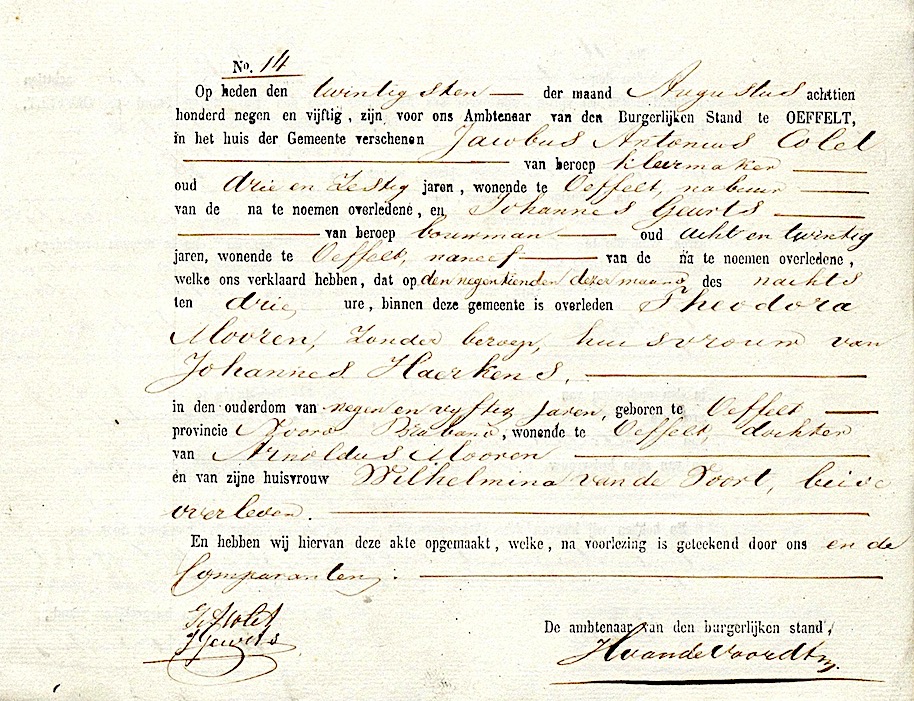 No. 14
Op heden den twintigsten der maand Augustus achttien
honderd negen en vijftig, zijn voor ons Ambtenaar van den Burgerlijken Stand te OEFFELT,
in het huis der Gemeente verschenen Jacobus Antonius Colet
van beroep kleermaker
oud drie en zestig jaren, wonende te Oeffelt, nabuur
van de na te noemen overledene, en Johannes Geurts
van beroep bouwman oud acht en twintig
jaren, wonende te Oeffelt, naneef van de na te noemen overledene,
welke ons verklaard hebben, dat op den negentienden dezer maand des nachts
ten drie ure, binnen deze gemeente is overleden Theodora
Mooren, zonder beroep, huisvrouw van
Johannes Haerkens,
in den ouderdom van negen en vyftig jaren, geboren te Oeffelt
provincie Noord Braband, wonende te Oeffelt, dochter
van Arnoldus Mooren
en van zijne huisvrouw Wilhelmina van de Voort, beide
overleden.
En hebben wij hiervan deze akte opgemaakt, welke, na voorlezing is geteekend door ons en de
Comparanten.
Colet
J Geurts
De ambtenaar van den burgerlijken stand,
HvandeVoordt